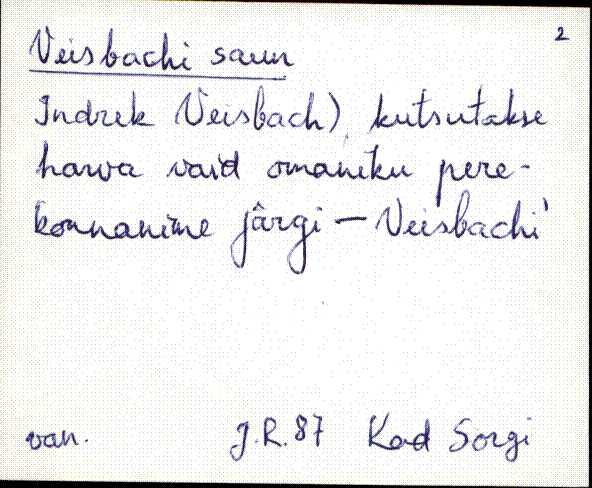 2
Veisbachi saun
Indrek Veisbach) kutsutakse
harva vaid omaniku pere-
konnanime järgi — Veisbachi'
van. J.R. 87 Kod Sorgi